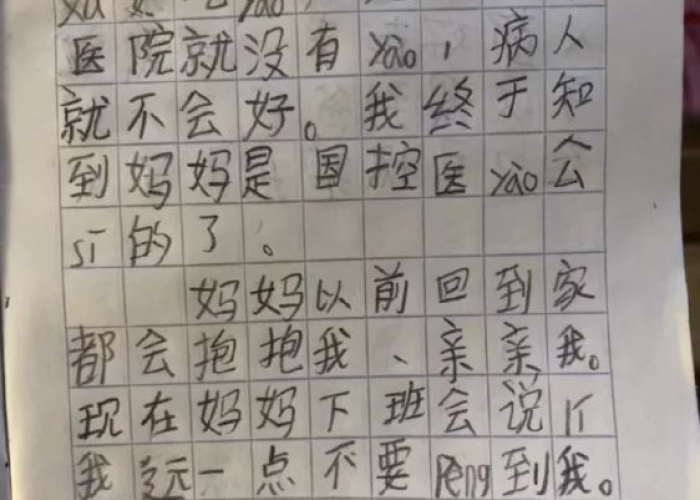 医院就没有yào，病人
就不会好。我终于知
到妈妈是国控医yào公
sī的了。
妈妈以前回到家
都会抱抱我、亲亲我。
现在妈妈下班会说
我远一点不要Pèng到我。